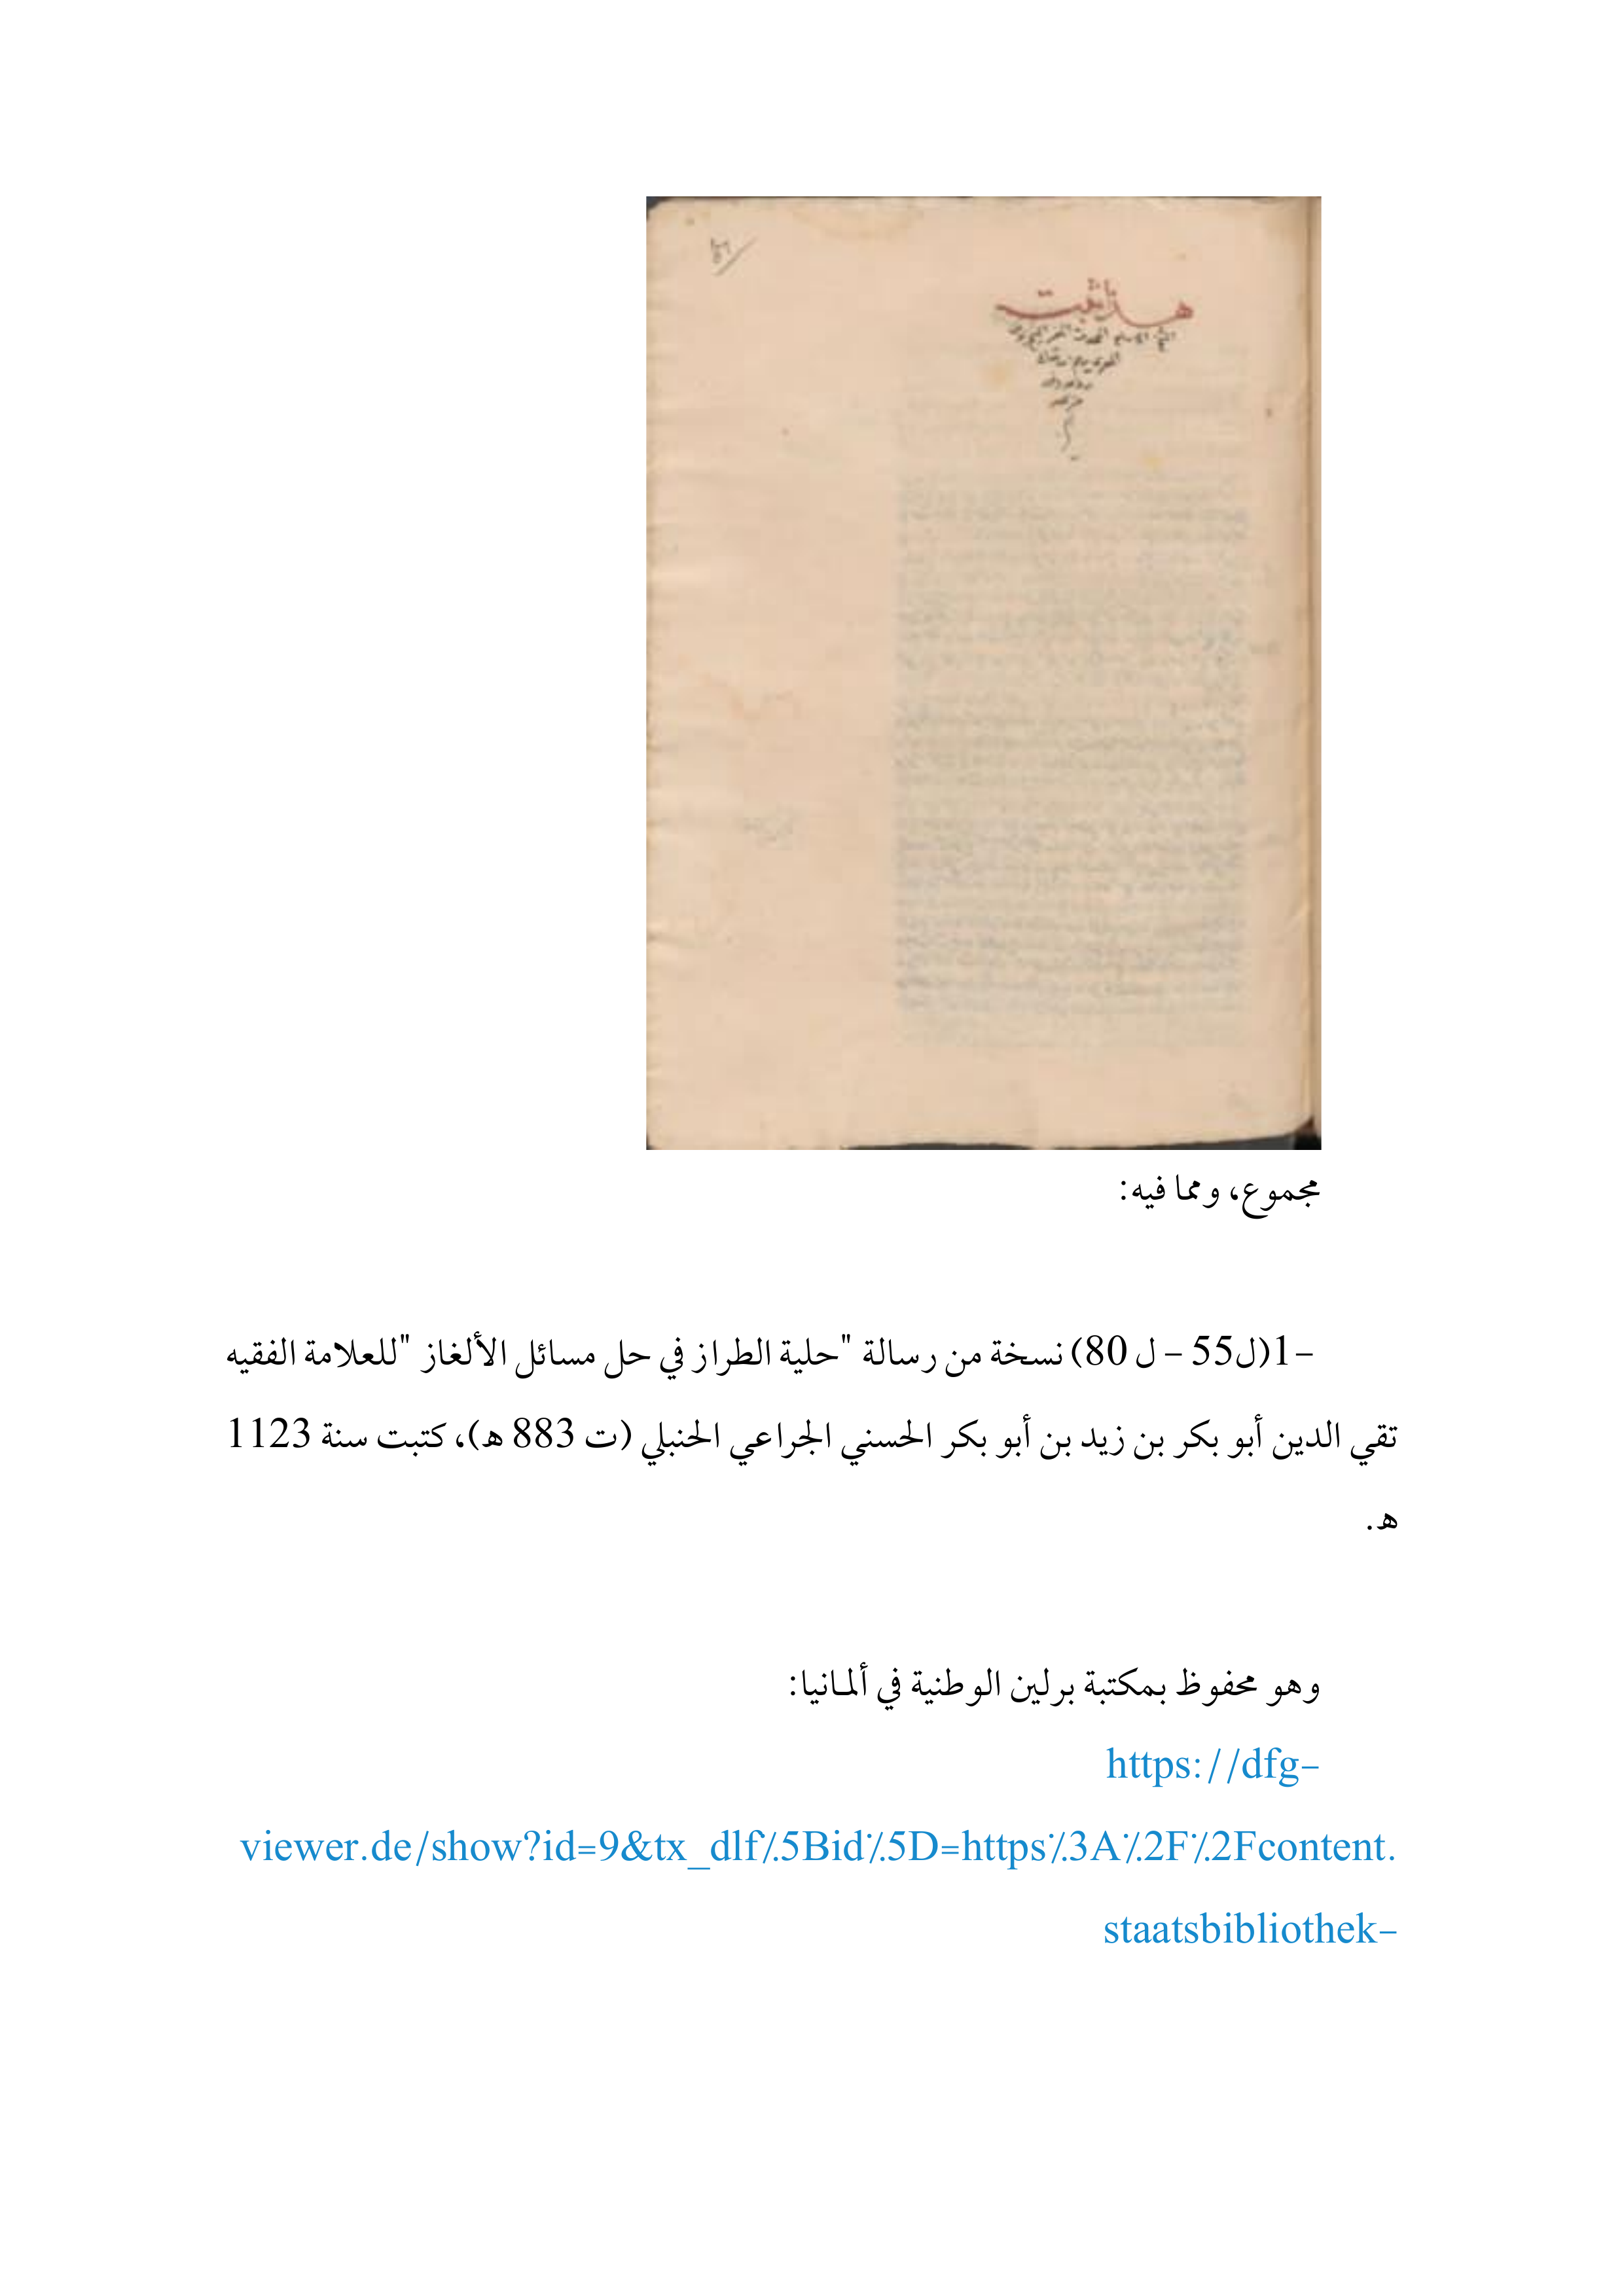 هذا ثبت
مجموع، ومما فيه:
1-(ل55 – ل 80) نسخة من رسالة "حلية الطراز في حل مسائل الألغاز "للعلامة الفقيه
تقي الدين أبو بكر بن زيد بن أبو بكر الحسني الجراعي الحنبلي (ت 883 ه)، كتبت سنة 1123
ه.
وهو محفوظ بمكتبة برلين الوطنية في ألمـانيا:
https://dfg-
viewer.de/show?id=9&tx_dlf٪5Bid٪5D=https٪3A٪2F٪2Fcontent.
staatsbibliothek-